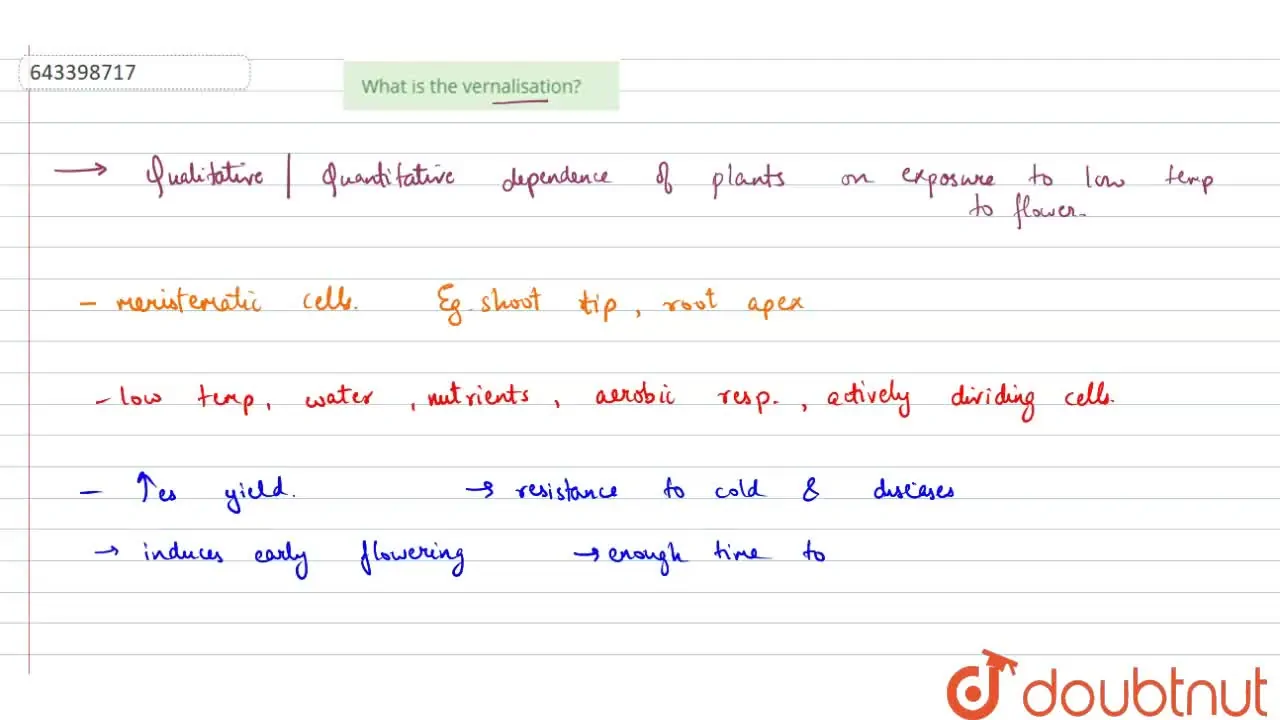 643398717
What is the vernalisation?
→ Qualitative | Quantitative dependence of plants on exposure to low temp
to flower.
- meristematic cells. Eg. shoot tip, root apex
- low temp, water, nutrients, aerobic resp., actively dividing cells.
- ↑es yield. → resistance to cold & diseases
→ induces early flowering → enough time to
doubtnut